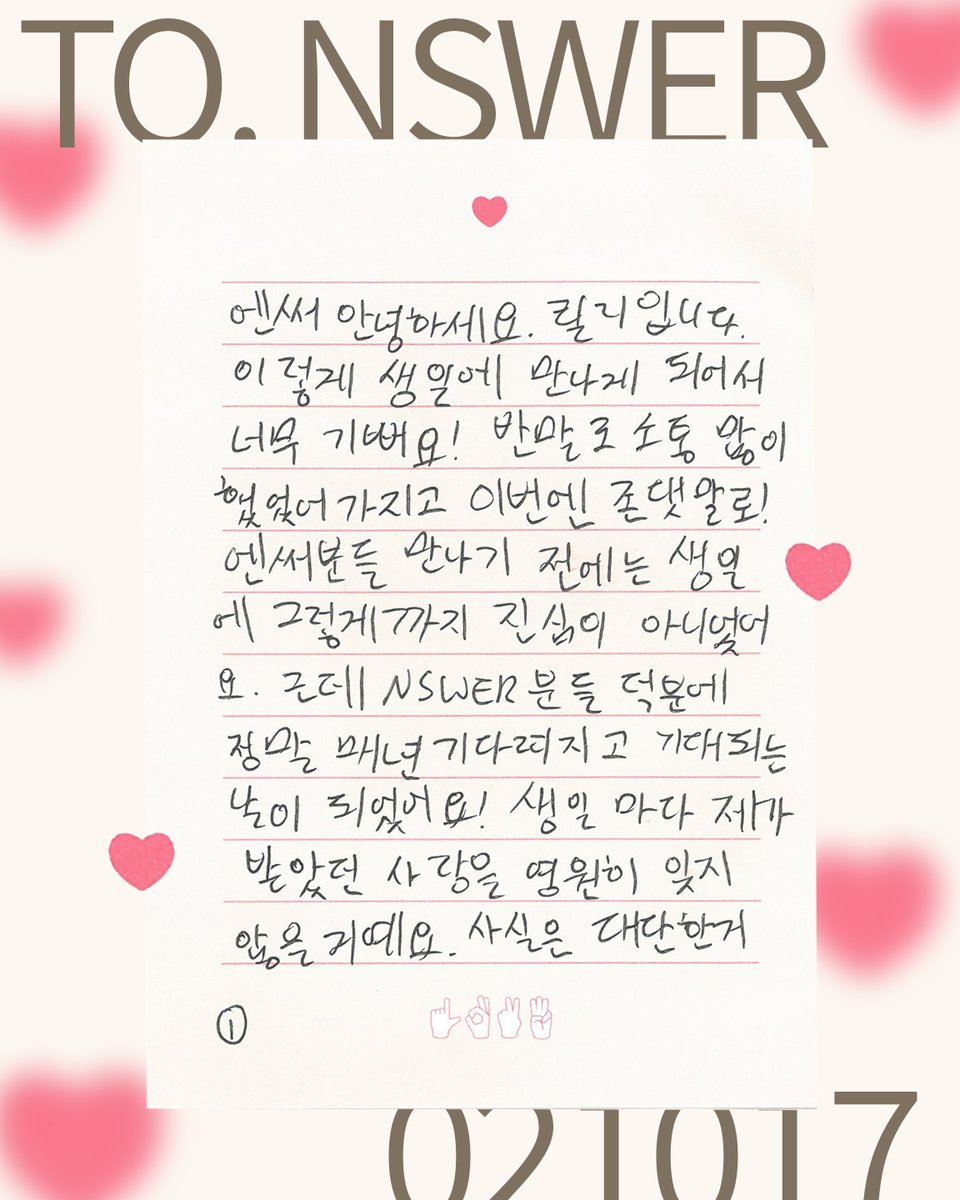 TO. NSWER
엔써 안녕하세요. 릴리입니다.
이렇게 생일에 만나게 되어서
너무 기뻐요! 반말로 소통 많이
했었어가지고 이번엔 존댓말로!
엔써분들 만나기 전에는 생일
에 그렇게까지 진심이 아니었어
요. 근데 NSWER분들 덕분에
정말 매년 기다려지고 기대되는
날이 되었어요! 생일 마다 제가
받았던 사랑을 영원히 잊지
않을 거예요. 사실은 대단한거
①
021017